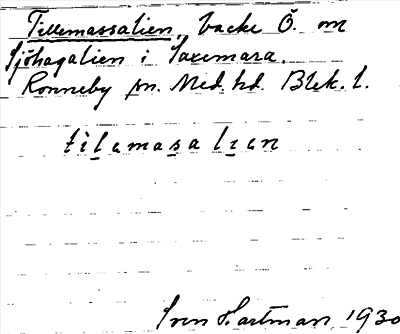 Tillemassalien, backe Ö. om
Sjöhagalien i Saxemara.
Ronneby sn. Med. hd. Blek. l.
tilemasalien
Sven Hartman, 1930